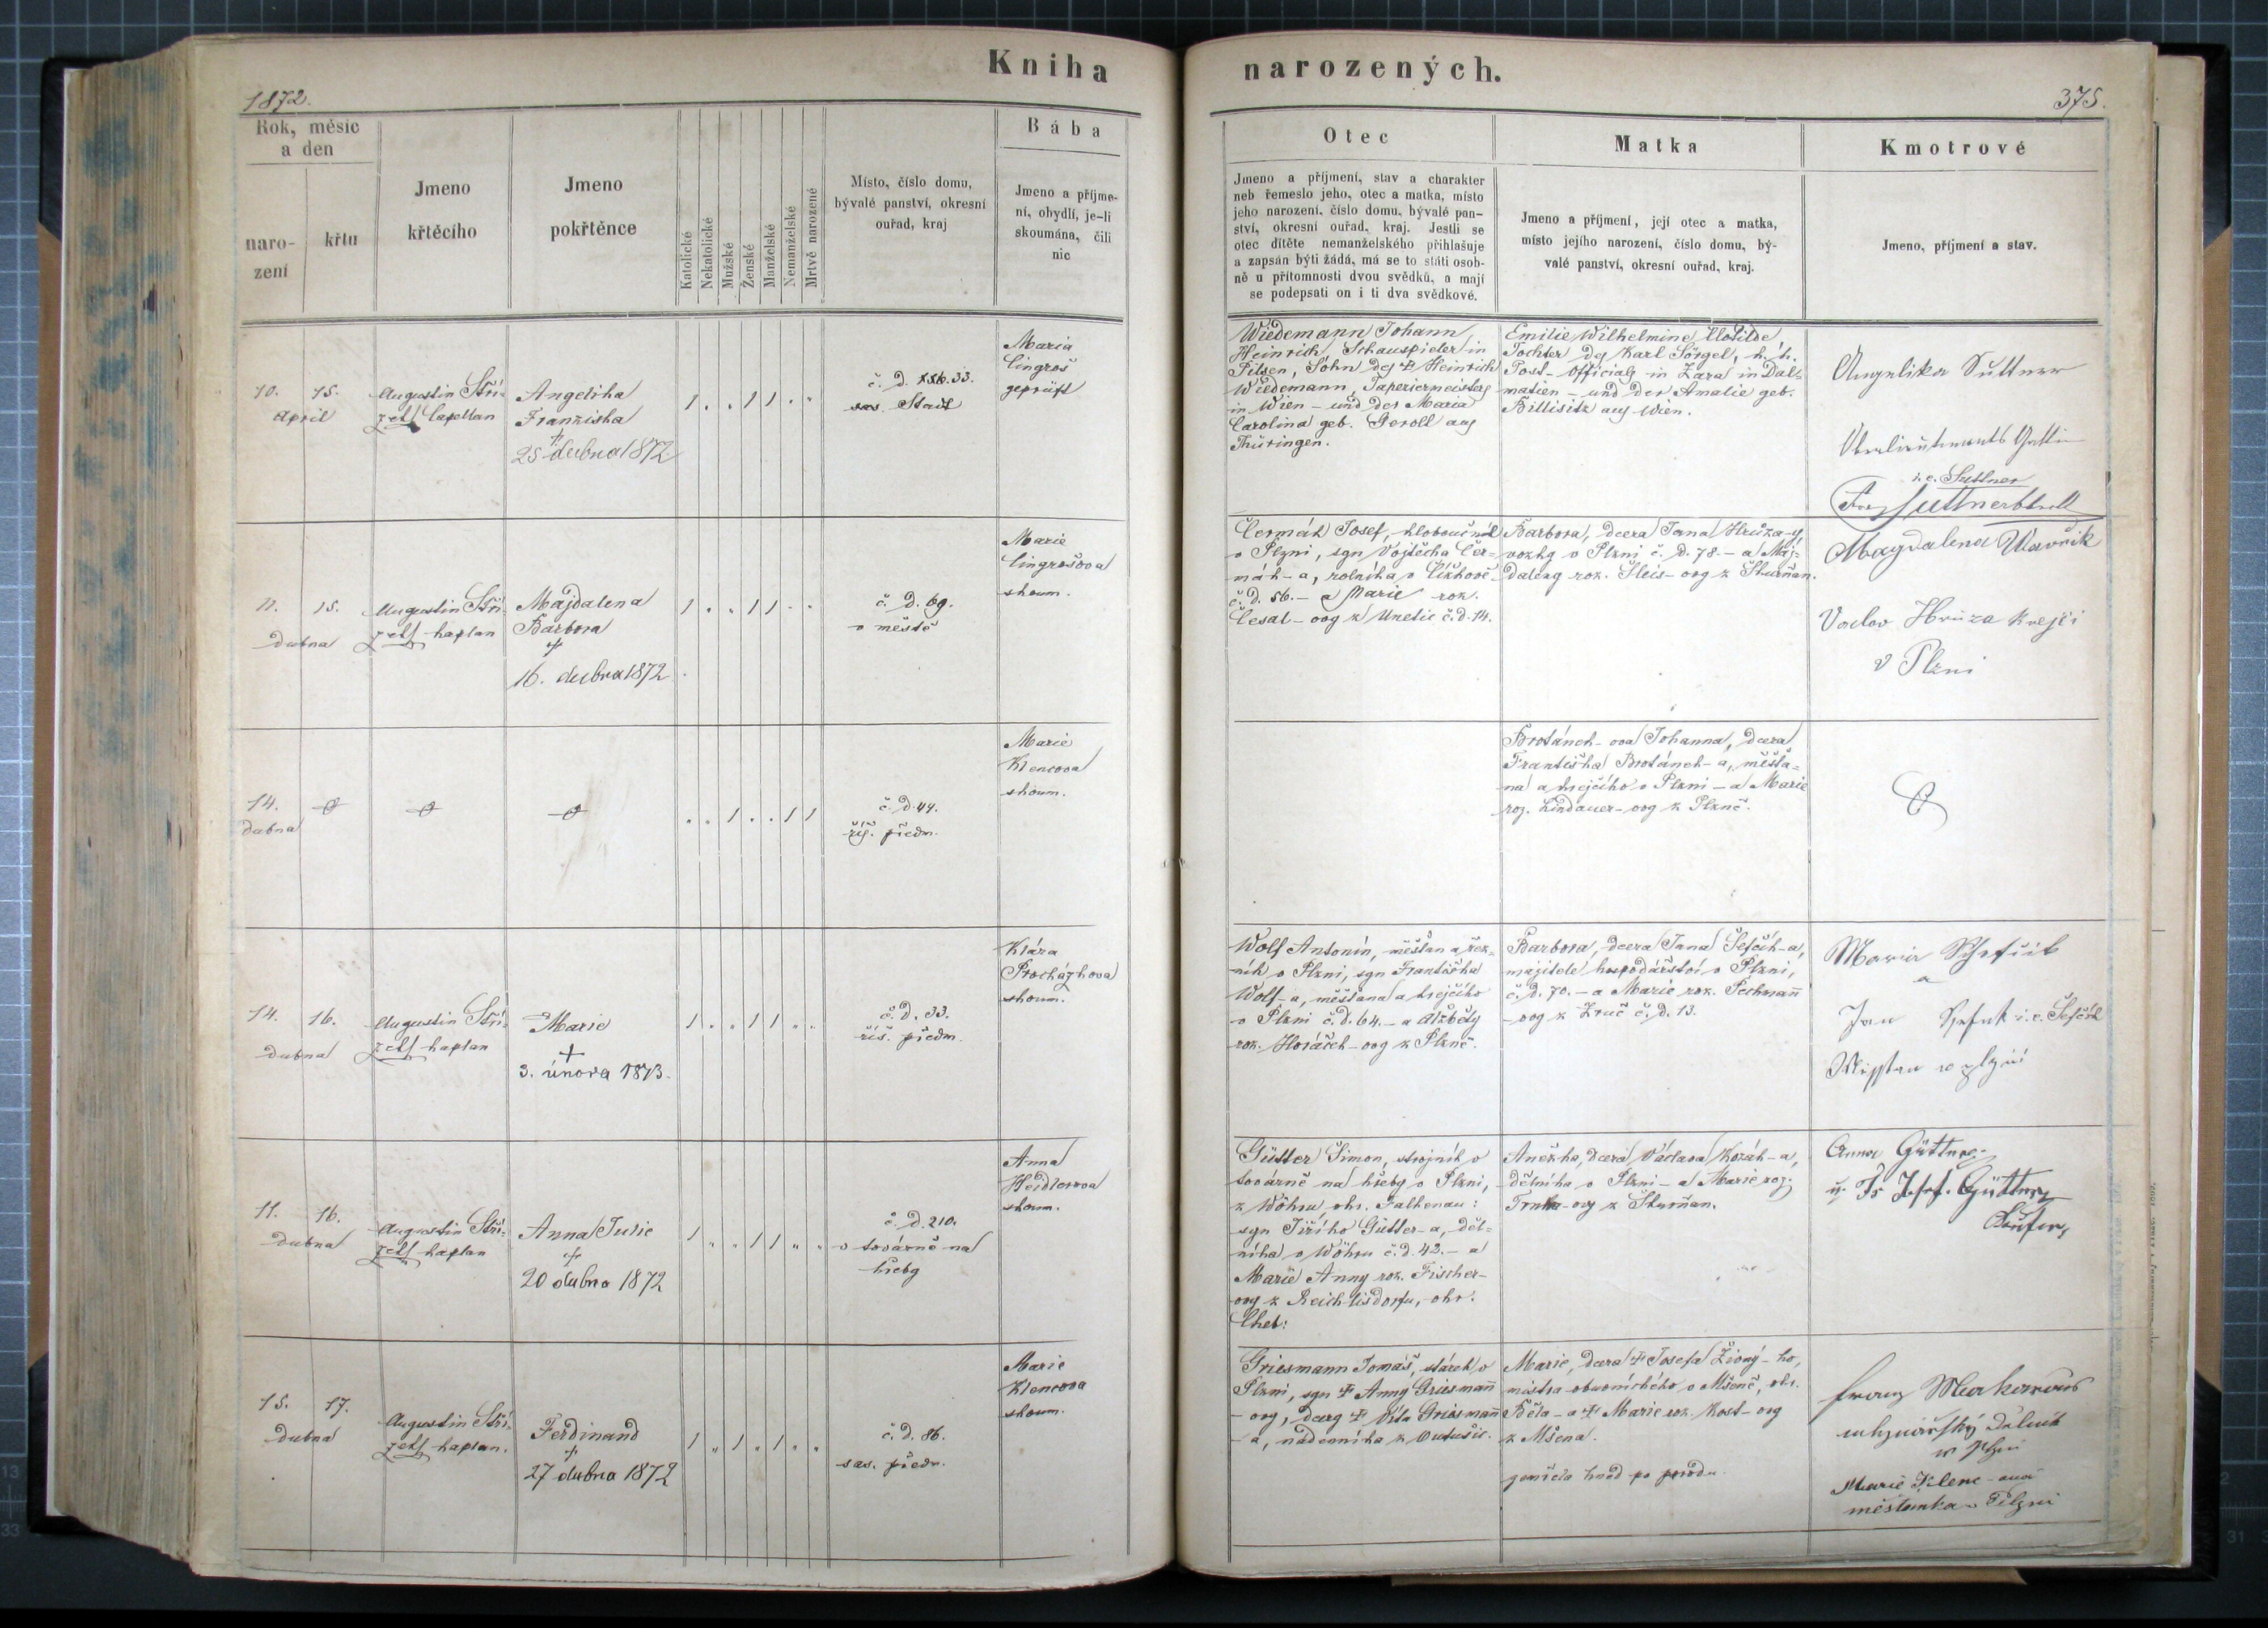 Kniha
narozených.
1872.
375.
Rok, měsíc
a den
naro-
zení
křtu
Jmeno
křtěcího
Jmeno
pokřtěnce
Katolické
Nekatolické
Mužské
Ženské
Manželské
Nemanželské
Mrtvě narozené
Místo, číslo domu,
bývalé panství, okresní
ouřad, kraj
Bába
Jmeno a příjme-
ní, obydlí, je-li
skoumána, čili
nic
Otec
Jmeno a příjmení, stav a charakter
neb řemeslo jeho, otec a matka, místo
jeho narození, číslo domu, bývalé pan-
ství, okresní ouřad, kraj. Jestli se
otec dítěte nemanželského přihlašuje
a zapsán býti žádá, má se to státi osob-
ně u přítomnosti dvou svědků, a mají
se podepsati on i ti dva svědkové.
Matka
Jmeno a příjmení, její otec a matka,
místo jejího narození, číslo domu, bý-
valé panství, okresní ouřad, kraj.
Kmotrové
Jmeno, příjmení a stav.
10. 15.
April
Augustin Stři-
Capellan
Angelika
Franziska
†
25 dubna 1872
1 . . 1 1 . .
č. D. 33.
Stadt
Maria
Lingroš
geprüft
Wiedemann Johann
Heinrich, Schauspieler in
Pilsen, Sohn des ♰ Heinrich
Wiedemann, Tapezierermeisters
in Wien – und der Maria
Carolina geb. Geroll aus
Thüringen.
Emilie Wilhelmine Clotilde
Tochter des Karl Sörgel, k. k.
Post-Officials in Zara in Dal-
matien – und der Amalie geb.
Billisitz aus Wien.
Angelika Suttner
Oberlieutenants Gattin
i. e. Suttner
11. 15.
dubna
Augustin Stři-
kaplan
Majdalena
Barbora
†
16. dubna 1872
1 . . 1 1 . .
č. D. 69.
v městě
Marie
Lingrošova
skoum.
Čermák Josef, kloboučník
v Plzni, syn Vojtěcha Čer-
mák-a, rolníka v
č. D. 56. – a Marie roz.
Česal-ovy z Unetic č. d. 14.
Barbora, dcera Jana Hrůza-y,
v Plzni č. D. 78. – a Maj-
daleny roz. Šleis-ovy z Skurňan.
Magdalena Wavřik
Vaclav Hruza Krejčí
v Plzni
14.
dubna
. . 1 . . 1 1
č. D. 44.
říš. předm.
Marie
Klencova
skoum.
Brotánek-ova Johanna, dcera
Františka Brotánek-a, měšťa-
na a krejčího v Plzni – a Marie
roz. Lindauer-ovy z Plzně.
14. 16.
dubna
Augustin Stři-
kaplan
Marie
†
3. února 1873.
1 . . 1 1 . .
č. D. 33.
říš. předm.
Klára
Procházkova
skoum.
Wolf Antonín, měšťan a řez-
ník v Plzni, syn Františka
Wolf-a, měšťana a krejčího
v Plzni č. d. 64. – a Alžběty
roz. Horáček-ovy z Plzně.
Barbora, dcera Jana Šefčík-a,
majitele hospodářství v Plzni,
č. d. 70. – a Marie roz. Pechmann
-ovy z Zruč č. D. 13.
Maria
a
Jan i. e. Šefčík
11. 16.
dubna
Augustin Stři-
kaplan
Anna Julie
†
20 dubna 1872
1 . . 1 1 . .
č. D. 210.
v továrně na
hřeby
Anna
Heidlerova
skoum.
Gütter Šimon, strojník v
továrně na hřeby v Plzni,
z Wöhru, okr. Falkenau:
syn Jiřího Gütter-a, děl-
níka v Wöhru č. d. 42. – a
Marie Anny roz. Fischer-
ovy z okr.
Cheb:
Anežka, dcera Václava Kozák-a,
dělníka v Plzni – a Marie roz.
Trnka-ovy z Skurňan.
Anna
15. 17.
dubna
Augustin Stři-
kaplan.
Ferdinand
†
27 dubna 1872
1 . 1 . 1 . .
č. D. 86.
sas. předm.
Marie
Klencova
skoum.
Griesmann Tomáš, stárek v
Plzni, syn ♰ Anny Griesmann
-ovy, dcery ♰ Víta Griesmann
-a, nádenníka z
Marie, dcera ♰ Josefa Živný-ho,
mistra obuvnického v Mšeně, okr.
Běla – a ♰ Marie roz. Kost-ovy
z Mšena.
hned po porodu.
Franz Makarous
Marie Klenc-ová
měšťanka v Pilzni